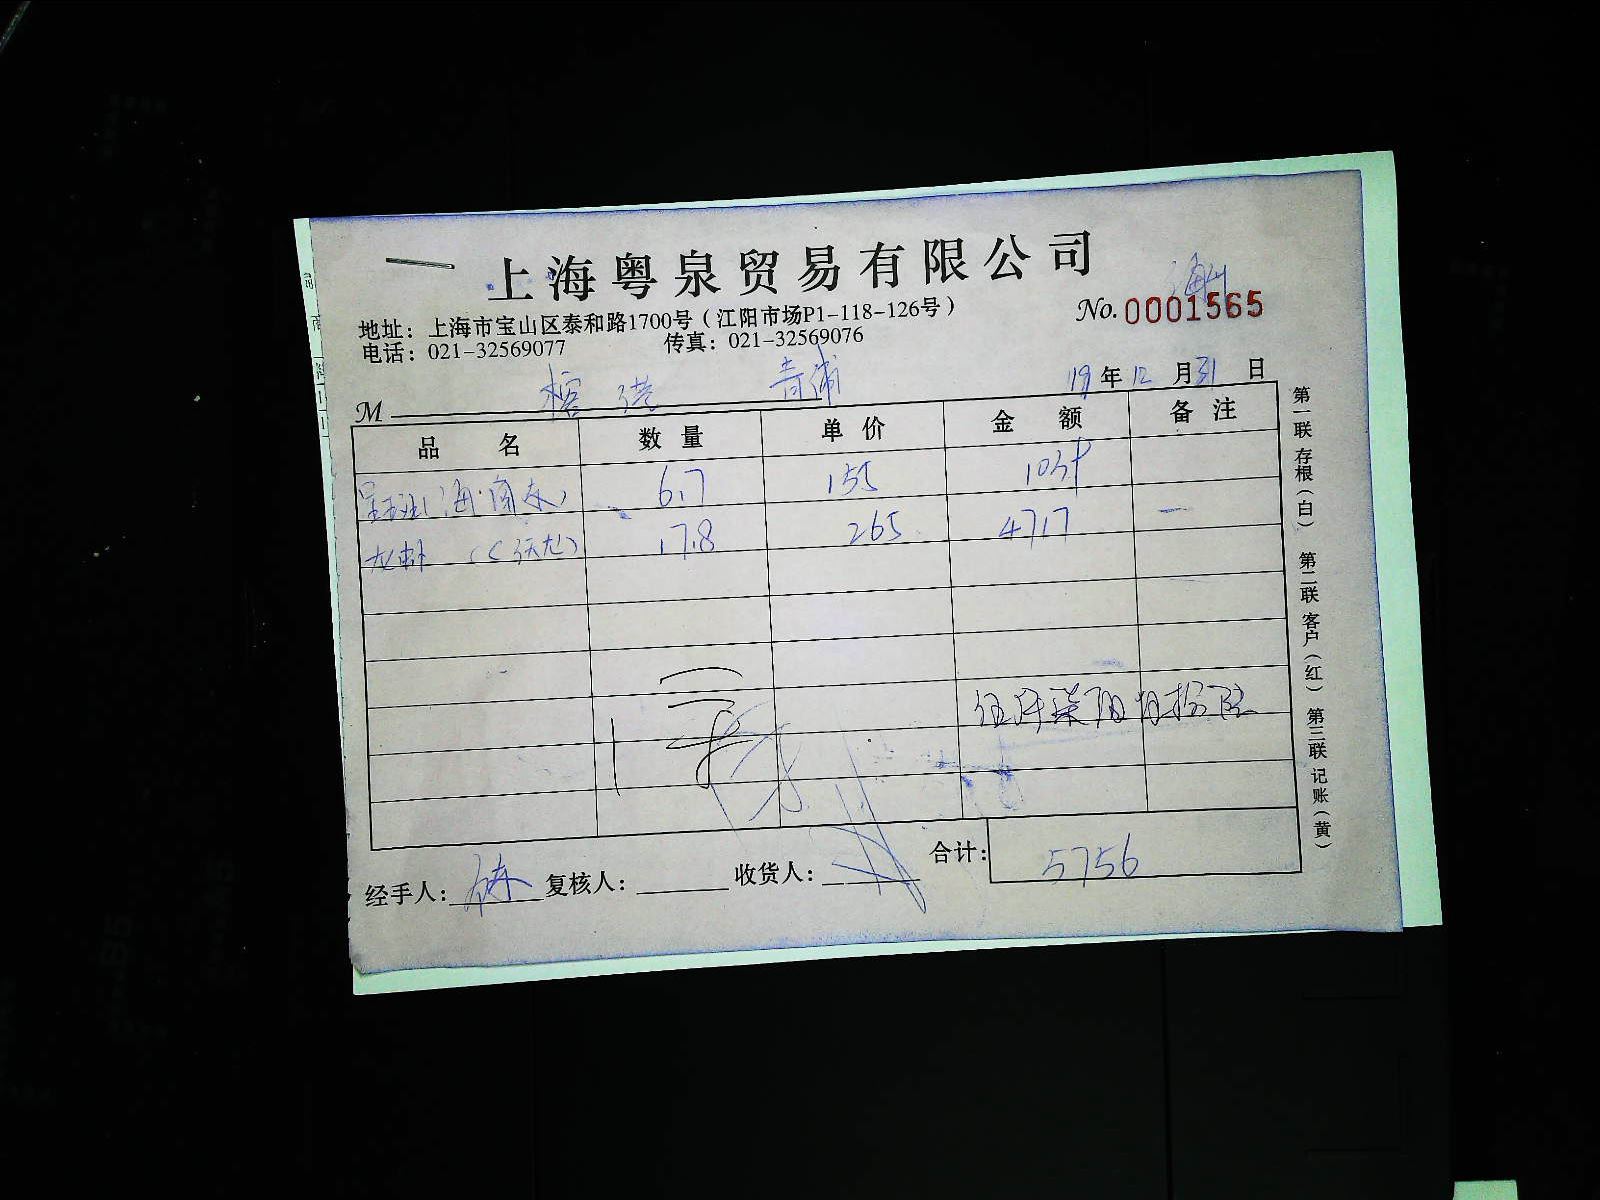 上海粤泉贸易有限公司
地址：上海市宝山区泰和路1700号（江阳市场P1-118-126号）
No. 0001565
电话：021-32569077 传真：021-32569076
榕港 青浦
19年12月31日
M
品名 数量 单价 金额 备注
6.7 155 1039
17.8 265 4717
合计： 5756
经手人： 复核人： 收货人：
第一联 存根（白） 第二联 客户（红） 第三联 记账（黄）